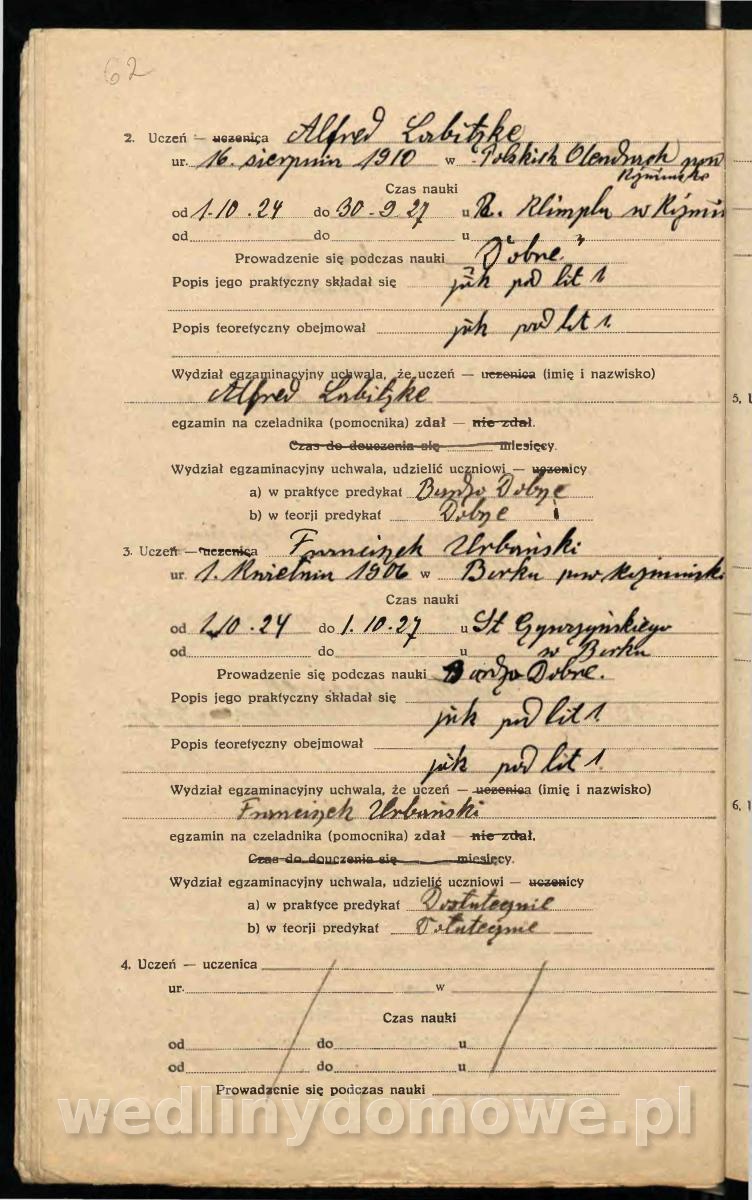 62
2. Uczeń — uczenica Alfred Labitzke
ur. 16. sierpnia 1910 w Polskich Olendrach pow
Czas nauki
od 1.10.24 do 30-9.27 u R. Klimpla w
od do u
Prowadzenie się podczas nauki „Dobre”
Popis jego praktyczny składał się jak pod lit 1.
Popis teoretyczny obejmował jak pod lit 1.
Wydział egzaminacyjny uchwala, że uczeń — uczenica (imię i nazwisko)
Alfred Labitzke
egzamin na czeladnika (pomocnika) zdał — nie zdał.
Czas do douczenia się miesięcy.
Wydział egzaminacyjny uchwala, udzielić uczniowi — uczenicy
a) w praktyce predykat Bardzo Dobrze
b) w teorji predykat Dobrze
3. Uczeń — uczenica Franciszek Urbański
ur. 1. Kwietnia 1906 w Borku pow
Czas nauki
od 1.10.24 do 1.10.27 u St
od do u w Borku
Prowadzenie się podczas nauki Bardzo Dobre.
Popis jego praktyczny składał się
jak pod lit 1.
Popis teoretyczny obejmował
jak pod lit 1.
Wydział egzaminacyjny uchwala, że uczeń — uczenica (imię i nazwisko)
Franciszek Urbański
egzamin na czeladnika (pomocnika) zdał — nie zdał.
Czas do douczenia się miesięcy.
Wydział egzaminacyjny uchwala, udzielić uczniowi — uczenicy
a) w praktyce predykat Dostatecznie
b) w teorji predykat Dostatecznie
4. Uczeń — uczenica
ur. w
Czas nauki
od do u
od do u
Prowadzenie się podczas nauki
5, U
6, U
wedlinydomowe.pl